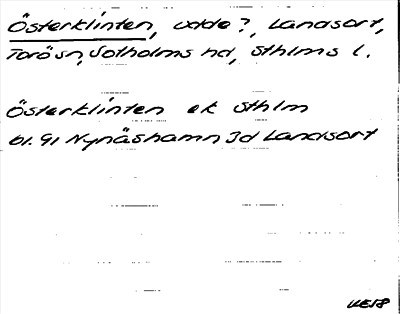 Österklinten, udde?, Landsort,
Torö sn, Sotholms hd, Sthlms l.
Österklinten ek Sthlm
bl. 91 Nynäshamn 3d Landsort